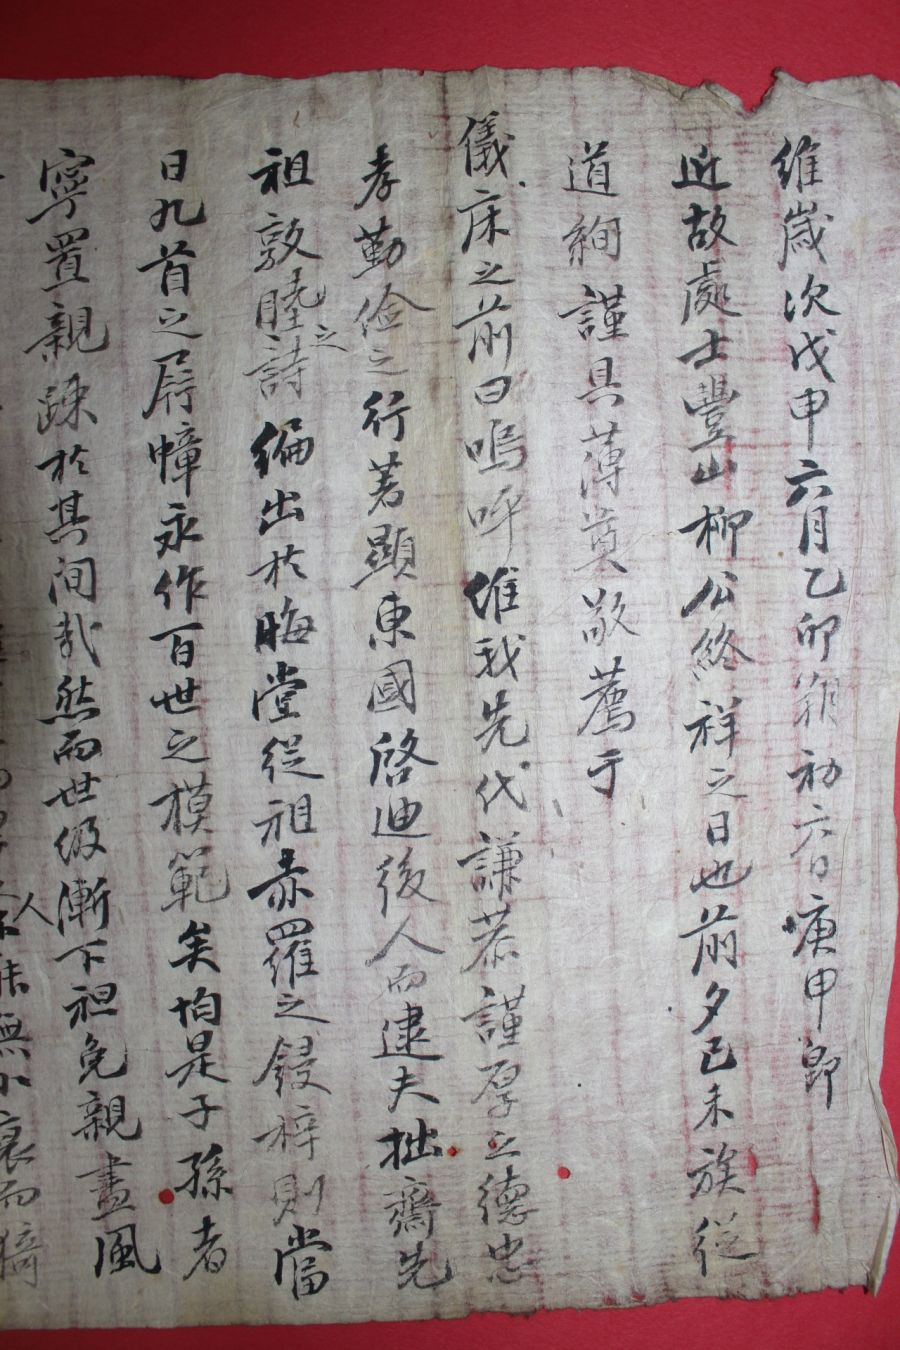 維歲次戊申六月乙卯朔初六日庚申卽
近故處士豐山柳公終祥之日也前夕己未族從
道絢謹具薄奠敬薦于
儀床之前曰嗚呼惟我先代謙恭謹厚之德忠
孝勤儉之行著顯東國啓迪後人而逮夫拙齋先
祖敦睦之詩編出於晦堂從祖赤羅之鋟梓則當
日九首之屛幛永作百世之模範矣怕是子孫者
寧置親踈於其間哉然而世級漸下袒免親盡風
人無小衰而猗